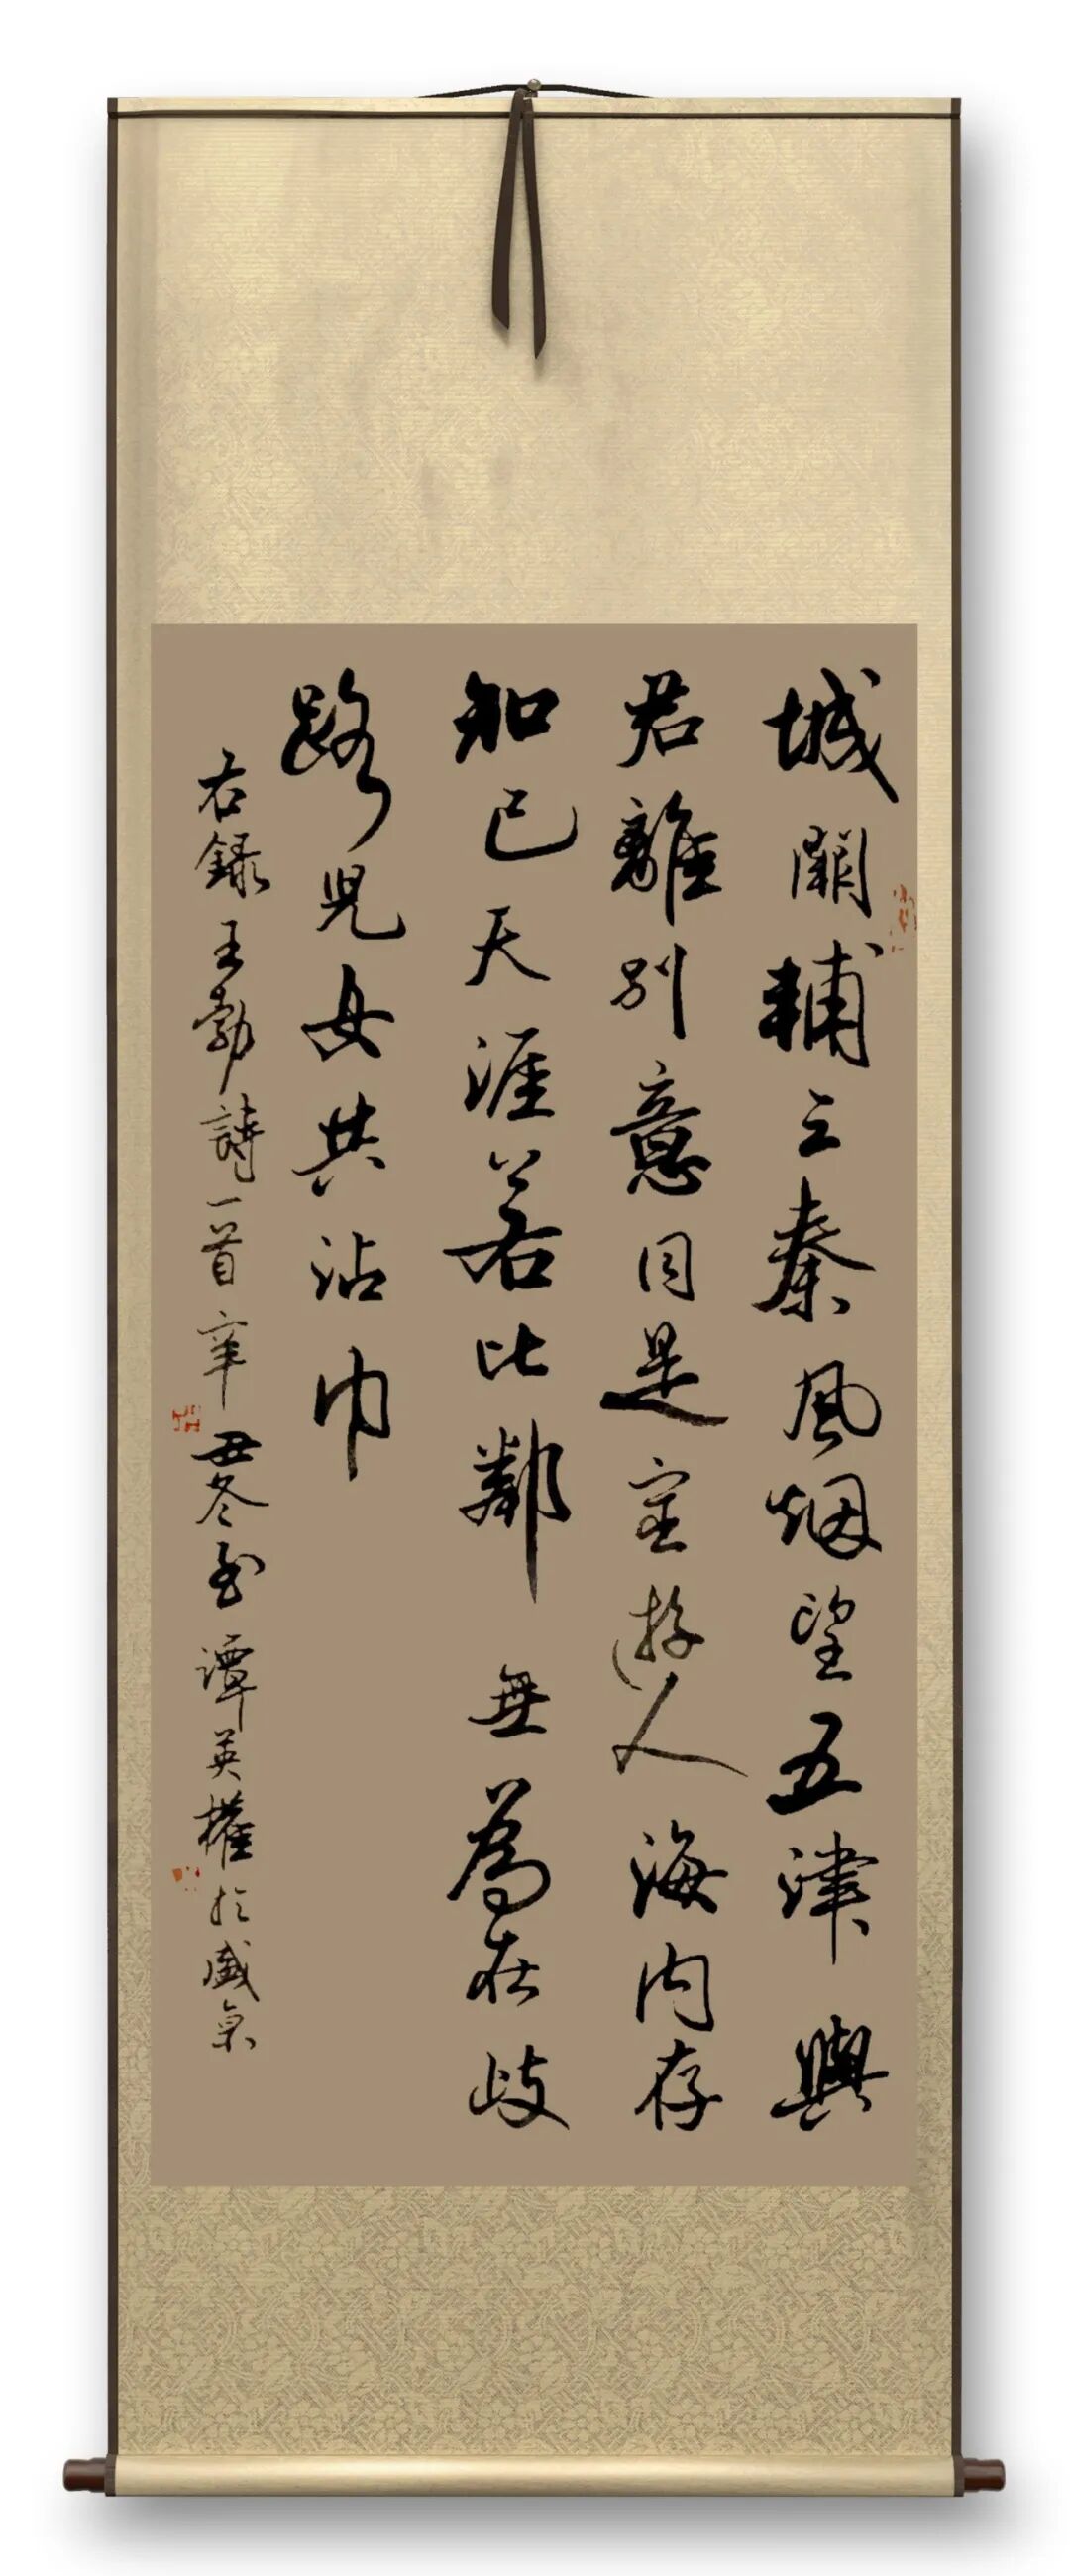 城闕輔三秦風烟望五津與
君離別意同是宦游人海内存
知己天涯若比鄰無為在歧
路兒女共沾巾
右録王勃詩一首辛丑冬至譚英權於盛京